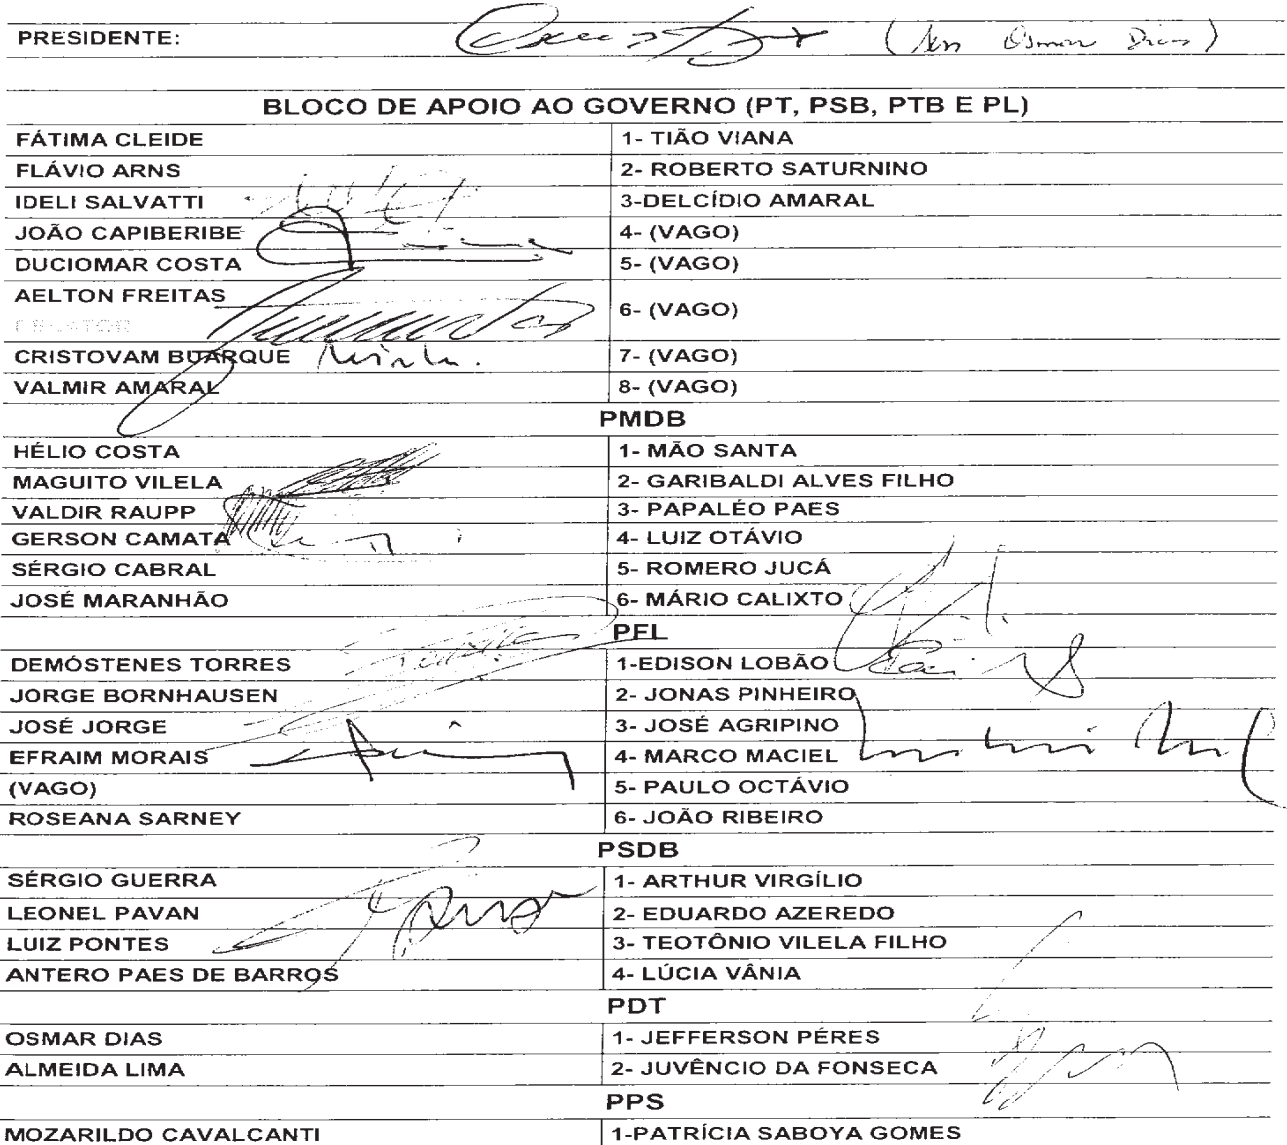 PRESIDENTE: (Sen Osmar Dias)
BLOCO DE APOIO AO GOVERNO (PT, PSB, PTB E PL)
FÁTIMA CLEIDE 1- TIÃO VIANA
FLÁVIO ARNS 2- ROBERTO SATURNINO
IDELI SALVATTI 3-DELCÍDIO AMARAL
JOÃO CAPIBERIBE 4- (VAGO)
DUCIOMAR COSTA 5- (VAGO)
AELTON FREITAS 6- (VAGO)
RELATOR
CRISTOVAM BUARQUE 7- (VAGO)
VALMIR AMARAL 8- (VAGO)
PMDB
HÉLIO COSTA 1- MÃO SANTA
MAGUITO VILELA 2- GARIBALDI ALVES FILHO
VALDIR RAUPP 3- PAPALÉO PAES
GERSON CAMATA 4- LUIZ OTÁVIO
SÉRGIO CABRAL 5- ROMERO JUCÁ
JOSÉ MARANHÃO 6- MÁRIO CALIXTO
PFL
DEMÓSTENES TORRES 1-EDISON LOBÃO
JORGE BORNHAUSEN 2- JONAS PINHEIRO
JOSÉ JORGE 3- JOSÉ AGRIPINO
EFRAIM MORAIS 4- MARCO MACIEL
(VAGO) 5- PAULO OCTÁVIO
ROSEANA SARNEY 6- JOÃO RIBEIRO
PSDB
SÉRGIO GUERRA 1- ARTHUR VIRGÍLIO
LEONEL PAVAN 2- EDUARDO AZEREDO
LUIZ PONTES 3- TEOTÔNIO VILELA FILHO
ANTERO PAES DE BARROS 4- LÚCIA VÂNIA
PDT
OSMAR DIAS 1- JEFFERSON PÉRES
ALMEIDA LIMA 2- JUVÊNCIO DA FONSECA
PPS
MOZARILDO CAVALCANTI 1-PATRÍCIA SABOYA GOMES